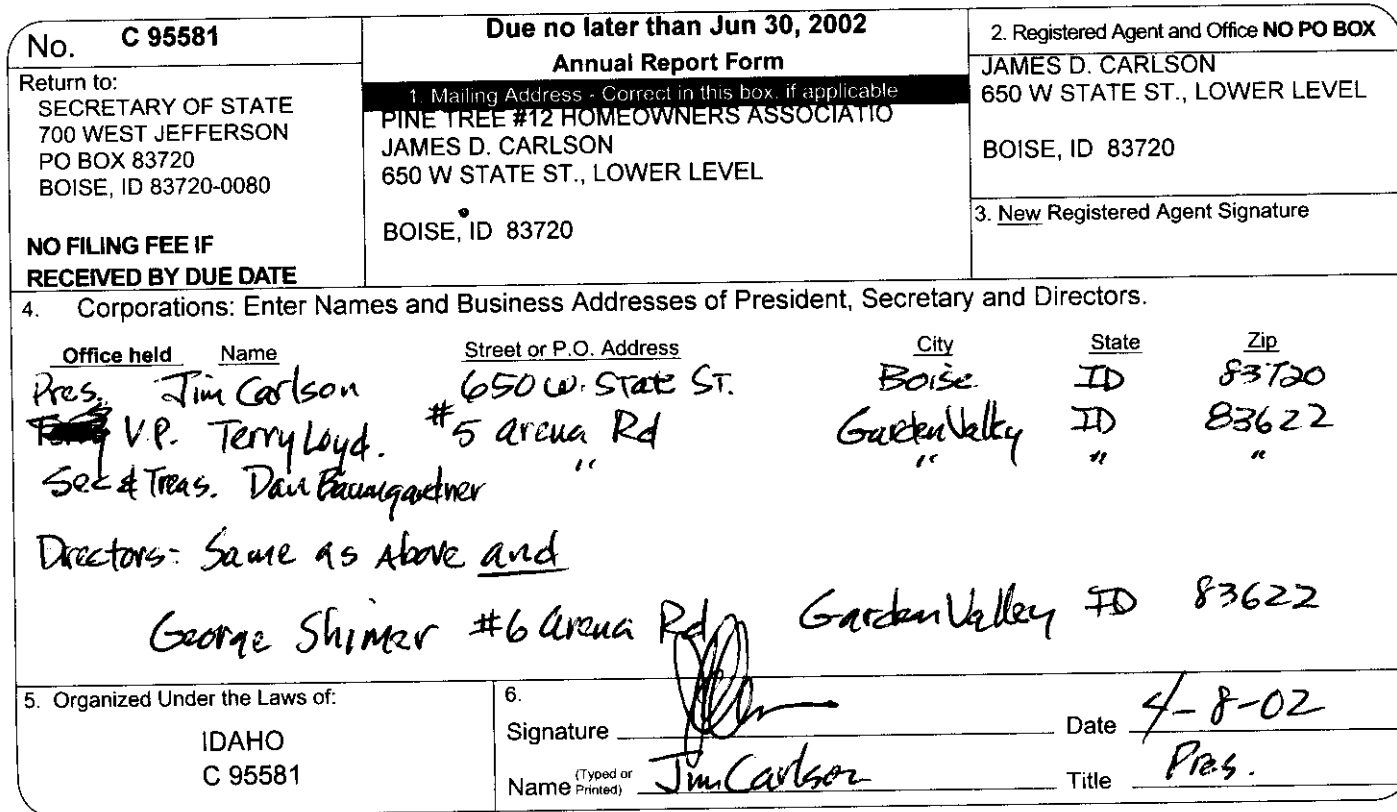 No. C 95581
Return to:
SECRETARY OF STATE
700 WEST JEFFERSON
PO BOX 83720
BOISE, ID 83720-0080
NO FILING FEE IF
RECEIVED BY DUE DATE
Due no later than Jun 30, 2002
Annual Report Form
1. Mailing Address - Correct in this box, if applicable
PINE TREE #12 HOMEOWNERS ASSOCIATIO
JAMES D. CARLSON
650 W STATE ST., LOWER LEVEL
BOISE, ID 83720
2. Registered Agent and Office NO PO BOX
JAMES D. CARLSON
650 W STATE ST., LOWER LEVEL
BOISE, ID 83720
3. New Registered Agent Signature
4. Corporations: Enter Names and Business Addresses of President, Secretary and Directors.
Office held Name Street or P.O. Address City State Zip
Pres. Jim Carlson 650 W. State St. Boise ID 83720
V.P. Terry Loyd. #5 arena Rd Garden Valley ID 83622
Sec & Treas. Dan Baumgardner " " " "
Directors: Same as Above and
George Shimer #6 arena Rd Garden Valley ID 83622
5. Organized Under the Laws of:
IDAHO
C 95581
6.
Signature Date 4-8-02
Name (Typed or Printed) Jim Carlson Title Pres.